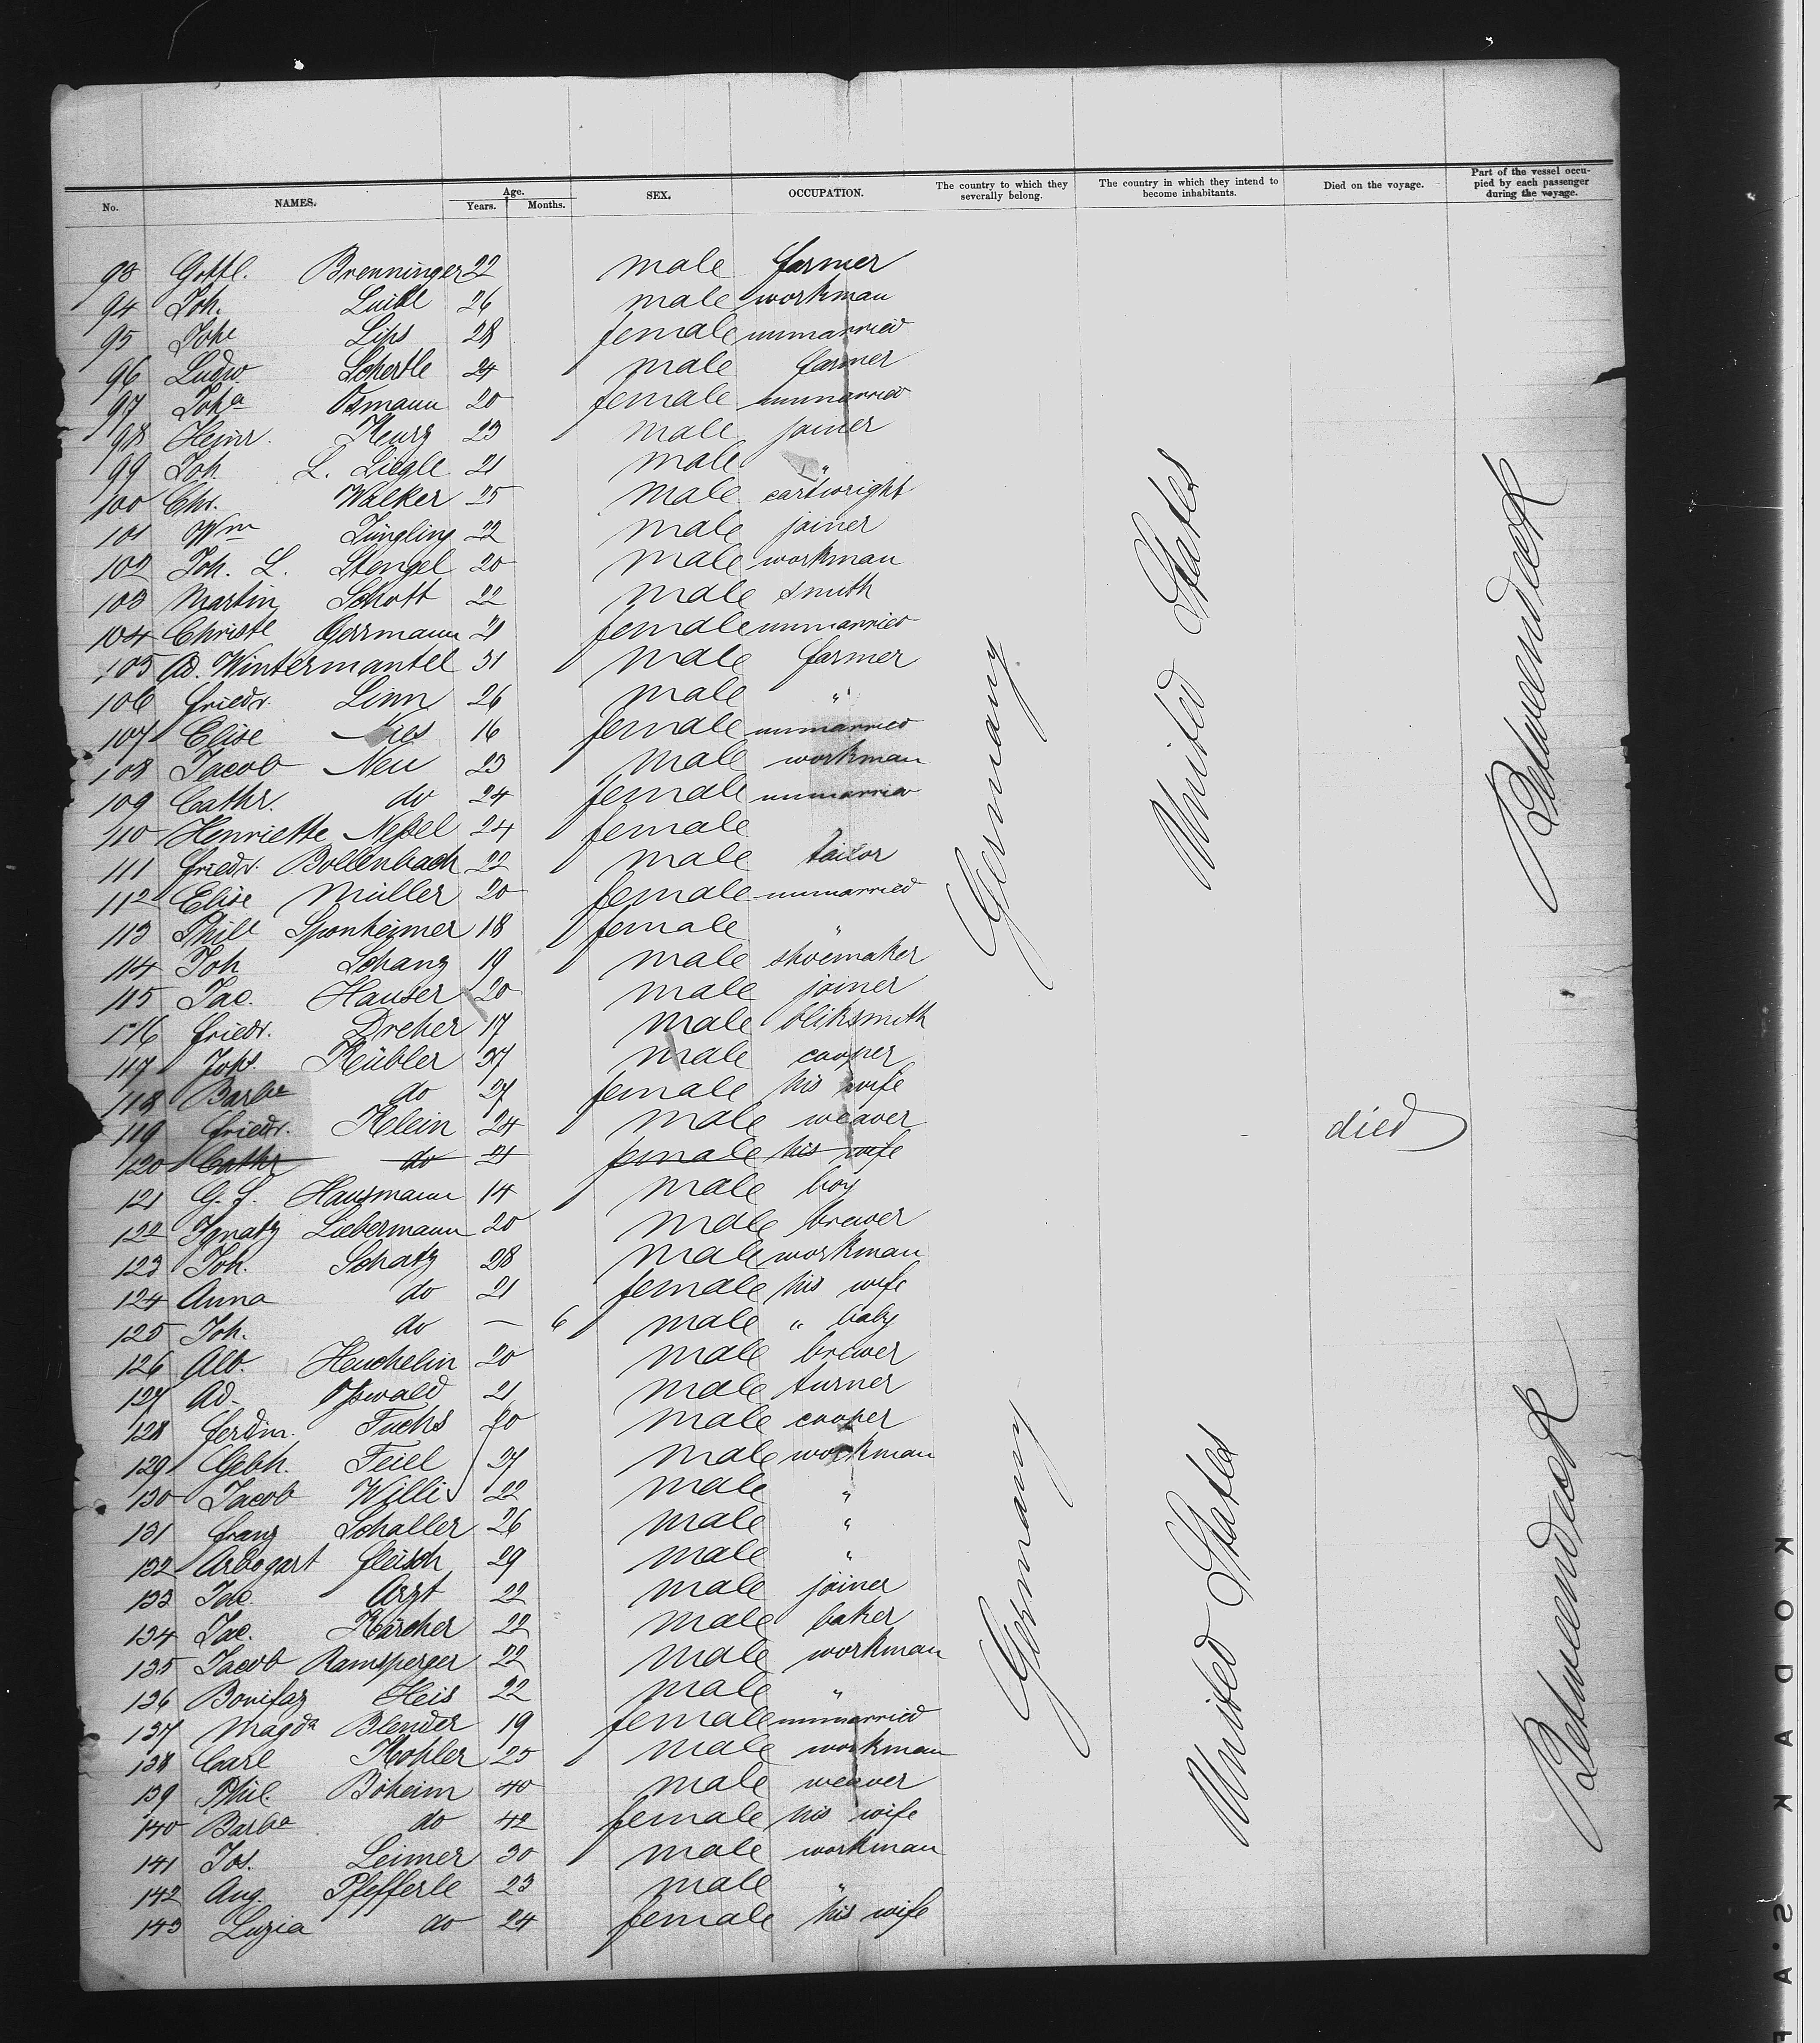 No. NAMES. Age. Years. Months. SEX. OCCUPATION. The country to which they severally belong. The country in which they intend to become inhabitants. Died on the voyage. Part of the vessel occupied by each passenger during the voyage.
93 Gottl. Brenninger 22 male farmer
94 Joh. 26 male workman
95 Johe Lips 28 female unmarried
96 Ludw. Scherble 24 male farmer
97 Joha Osmann 20 female unmarried
98 Heinr. Kurz 23 male joiner
99 Joh. L. Liegle 21 male "
100 Chr. Walker 25 male cartwright
101 Wm Jüngling 22 male joiner
102 Joh. L. Stengel 20 male workman
103 Martin Schott 22 male smith
104 Christe Germann 21 female unmarried
105 Ad. Wintermantel 31 male farmer
106 Friedr. Linn 26 male "
107 Elise 16 female unmarried
108 Jacob Neu 23 male workman
109 Cathr. do 24 female unmarried
110 Henriette Neßel 24 female
111 Friedr. Bollenbach 22 male tailor
112 Elise Müller 20 female unmarried
113 Phile Sponheimer 18 female "
114 Joh Schanz 19 male shoemaker
115 Jac. Hauser 20 male joiner
116 Friedr. Dreher 17 male bliksmith
117 Johs. Kübler 37 male cooper
118 Barba do 27 female his wife
119 Friedr. Klein 24 male weaver
120 Cathr do 21 female his wife died
121 G. F. Hausmann 14 male boy
122 Ignatz Liebermann 20 male brewer
123 Joh. Schatz 28 male workman
124 Anna do 21 female his wife
125 Joh. do — 6 male " baby
126 Alb. Heuchelin 20 male brewer
127 Ad. Oßwald 21 male turner
128 Ferdin. Fuchs 20 male cooper
129 Gebh. Feiel 37 male workman
130 Jacob Willi 22 male "
131 Franz Schaller 26 male "
132 Arbogart Fleisch 29 male "
133 Jac. Arzt 22 male joiner
134 Jac. Kärcher 22 male baker
135 Jacob Ramsperger 22 male workman
136 Bonifaz Heis 22 male "
137 Magda Blender 19 female unmarried
138 Carl Kohler 25 male workman
139 Phil. Böheim 40 male weaver
140 Barba do 42 female his wife
141 Jos. Leimer 30 male workman
142 Aug. Pfefferle 23 male "
143 Luzia do 24 female his wife
Germany
United States
Betweendeck
Germany
United States
Betweendeck
KODAK S.A